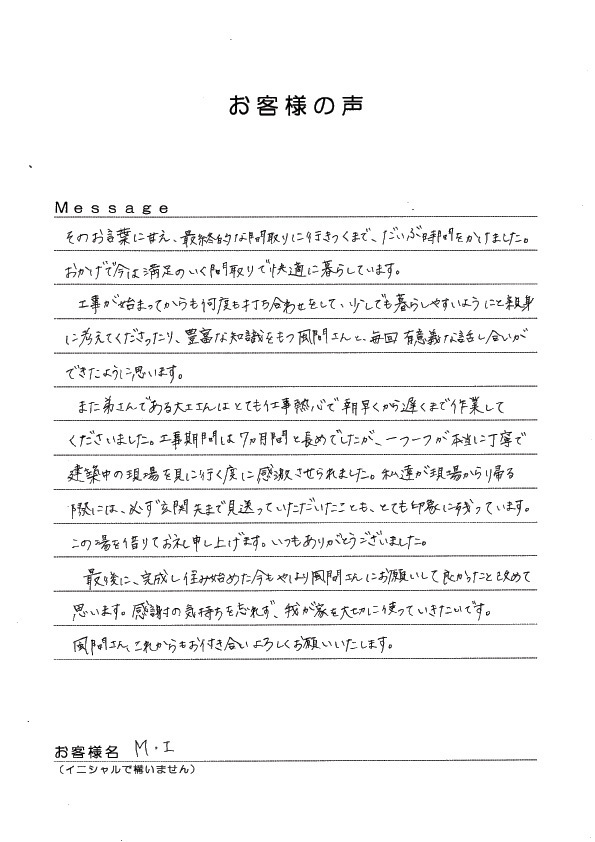 お客様の声
Message
そのお言葉に甘え、最終的な間取りに行きつくまで、だいぶ時間をかけました。
おかげで今は満足のいく間取りで快適に暮らしています。
工事が始まってからも何度も打ち合わせをして、少しでも暮らしやすいようにと親身
に考えてくださったり、豊富な知識をもつ風間さんと、毎回有意義な話し合いが
できたように思います。
また弟さんである大工さんはとても仕事熱心で朝早くから遅くまで作業して
くださいました。工事期間は7ヵ月間と長めでしたが、一つ一つが本当に丁寧で
建築中の現場を見に行く度に感激させられました。私達が現場から帰る
際には、必ず玄関先まで見送っていただいたことも、とても印象に残っています。
この場を借りてお礼申し上げます。いつもありがとうございました。
最後に、完成し住み始めた今もやはり風間さんにお願いして良かったと改めて
思います。感謝の気持ちを忘れず、我が家を大切に使っていきたいです。
風間さん、これからもお付き合いよろしくお願いいたします。
お客様名 M・I
（イニシャルで構いません）